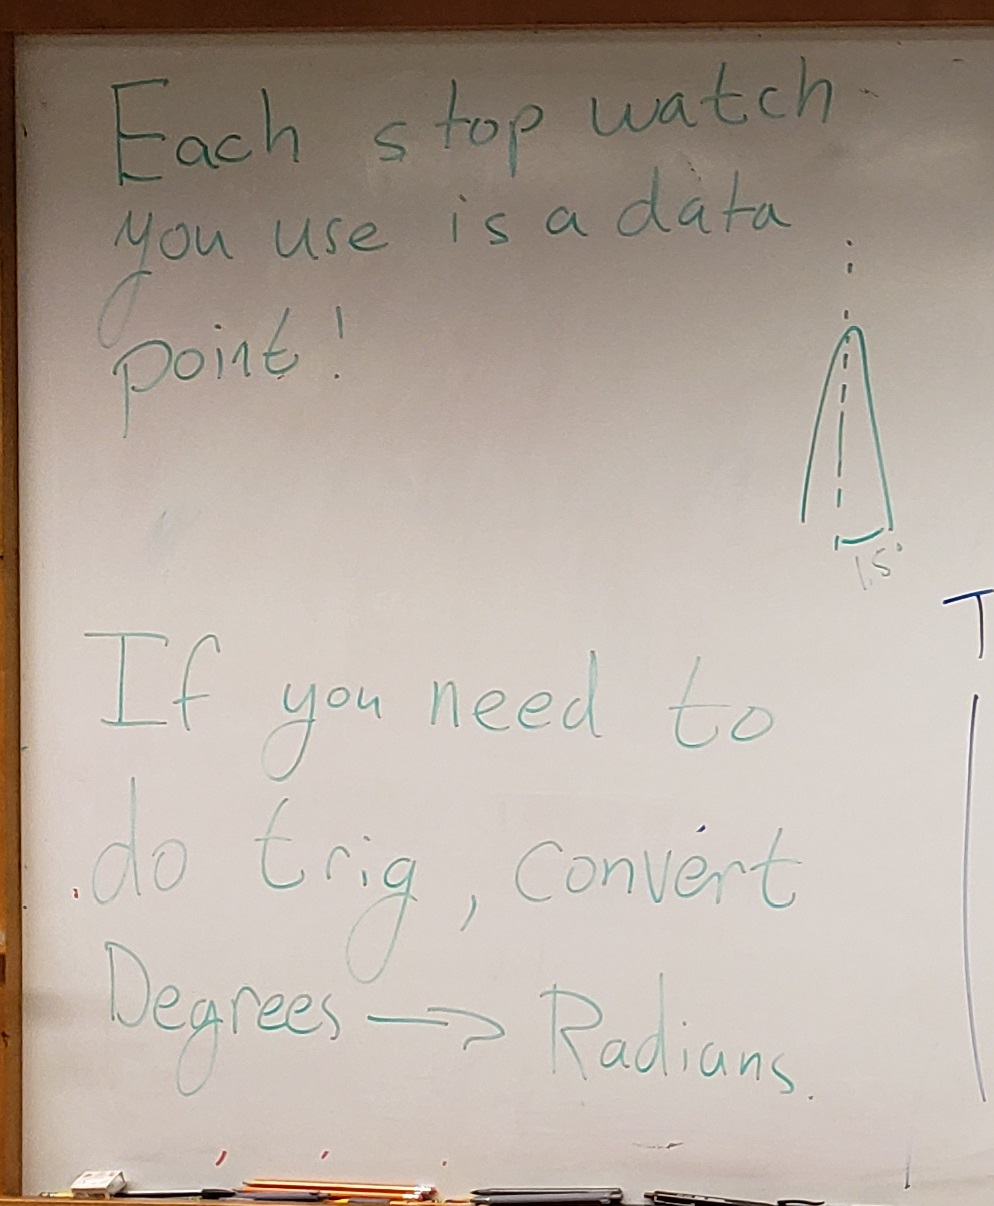 Each stop watch
you use is a data
point!
1.5°
If you need to
do trig, convert
Degrees → Radians.
T